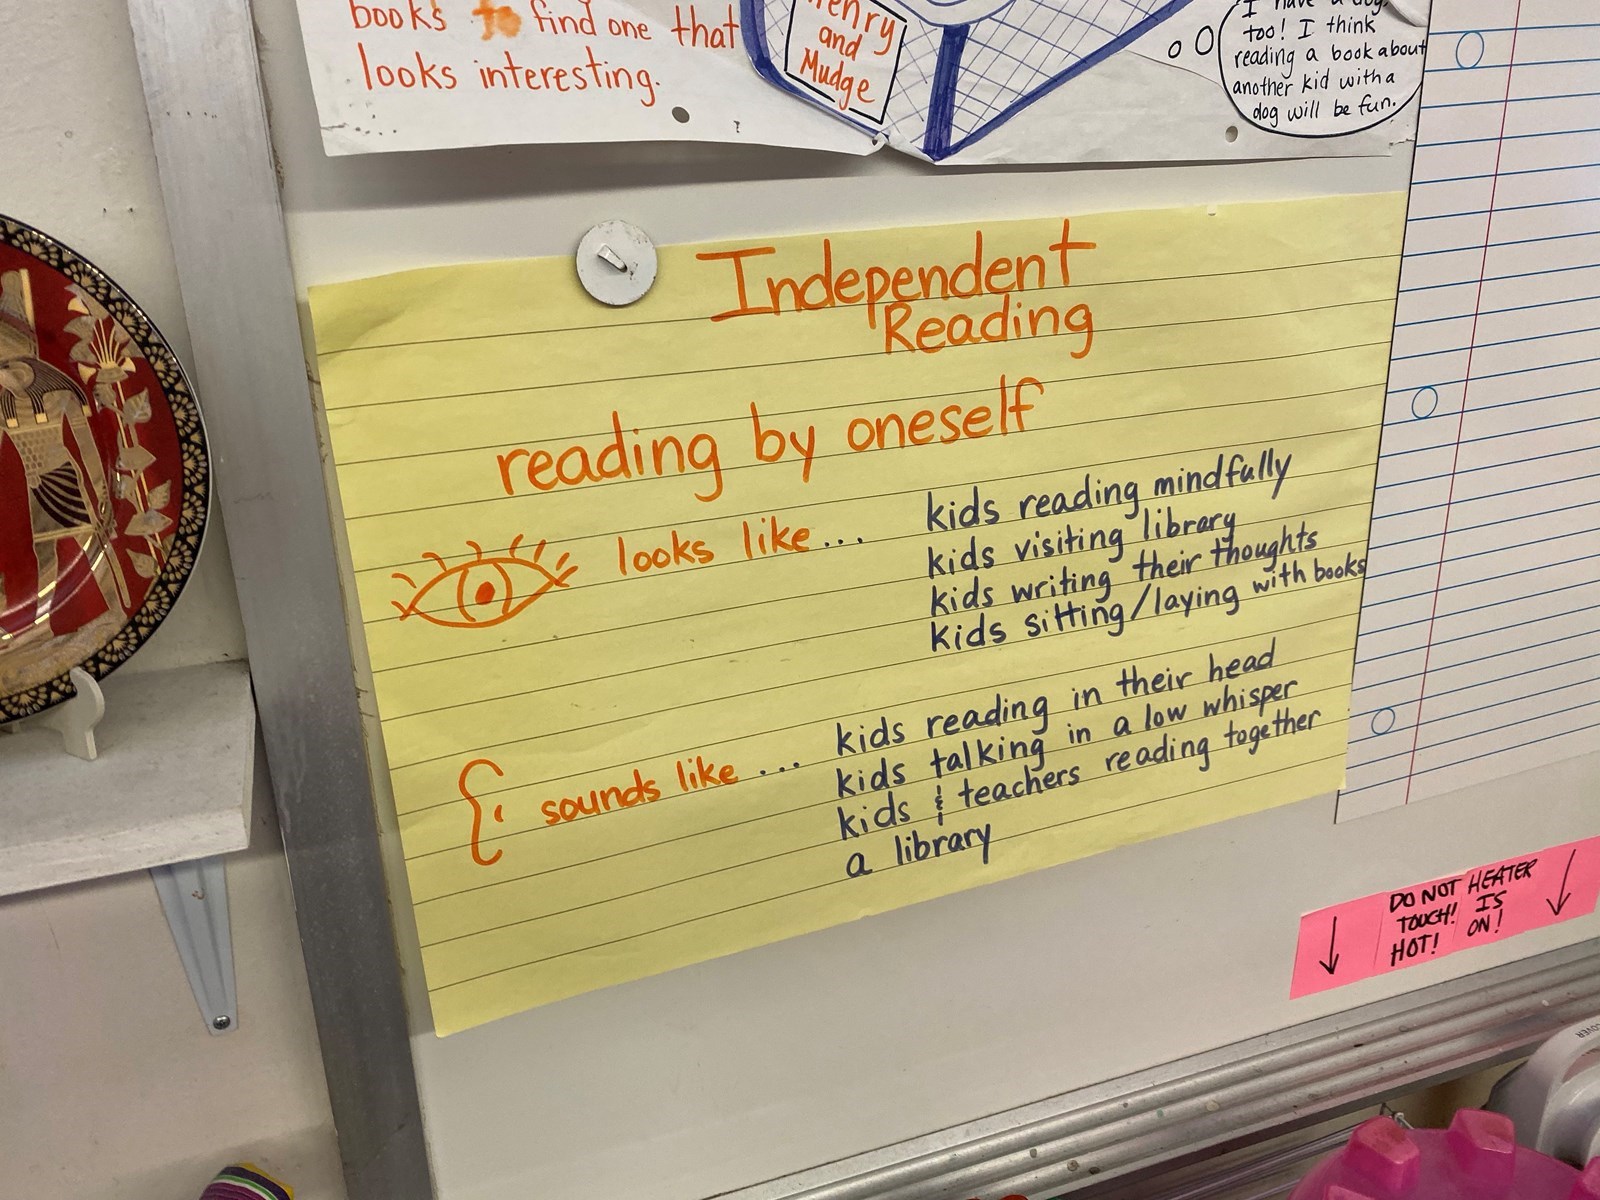 books to find one that
looks interesting.
Henry
and
Mudge
I have a dog,
too! I think
reading a book about
another kid with a
dog will be fun.
Independent
Reading
reading by oneself
looks like...
kids reading mindfully
kids visiting library
kids writing their thoughts
kids sitting/laying with books
sounds like...
kids reading in their head
kids talking in a low whisper
kids & teachers reading together
a library
DO NOT
TOUCH!
HOT!
HEATER
IS
ON!